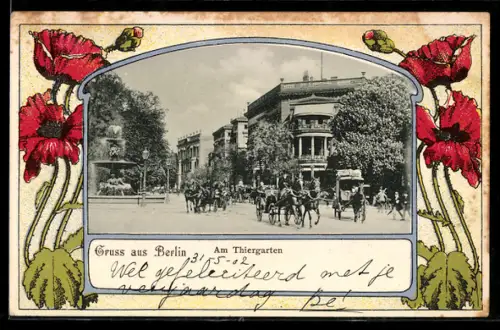 Gruss aus Berlin
Am Thiergarten
31/5-02
Wel gefeliciteerd met je
verjaardag.